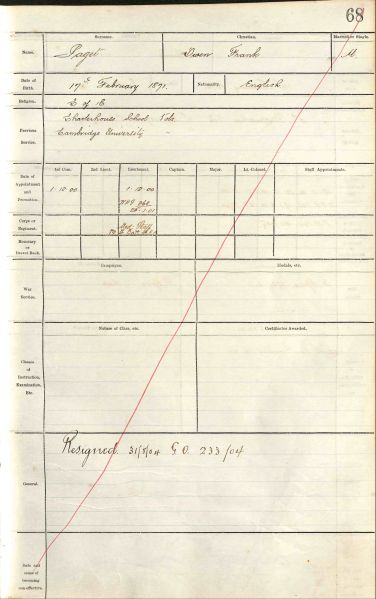 68
Surname. Christian. Married or Single.
Name. Paget Owen Frank M.
Date of Birth. 17th February 1871. Nationality. English
Religion. C of E
Previous Service.
Charterhouse School Vols.
Cambridge University
1st Com. 2nd Lieut. Lieutenant. Captain. Major. Lt.-Colonel. Staff Appointments.
Date of Appointment and Promotion.
1.12.00 1.12.00
Corps or Regiment.
Honorary or Brevet Rank.
Campaigns. Medals, etc.
War Service.
Nature of Class, etc. Certificates Awarded.
Classes of Instruction, Examination, Etc.
General.
Resigned 31/8/04 G.O. 233/04
Date and cause of becoming non-effective.